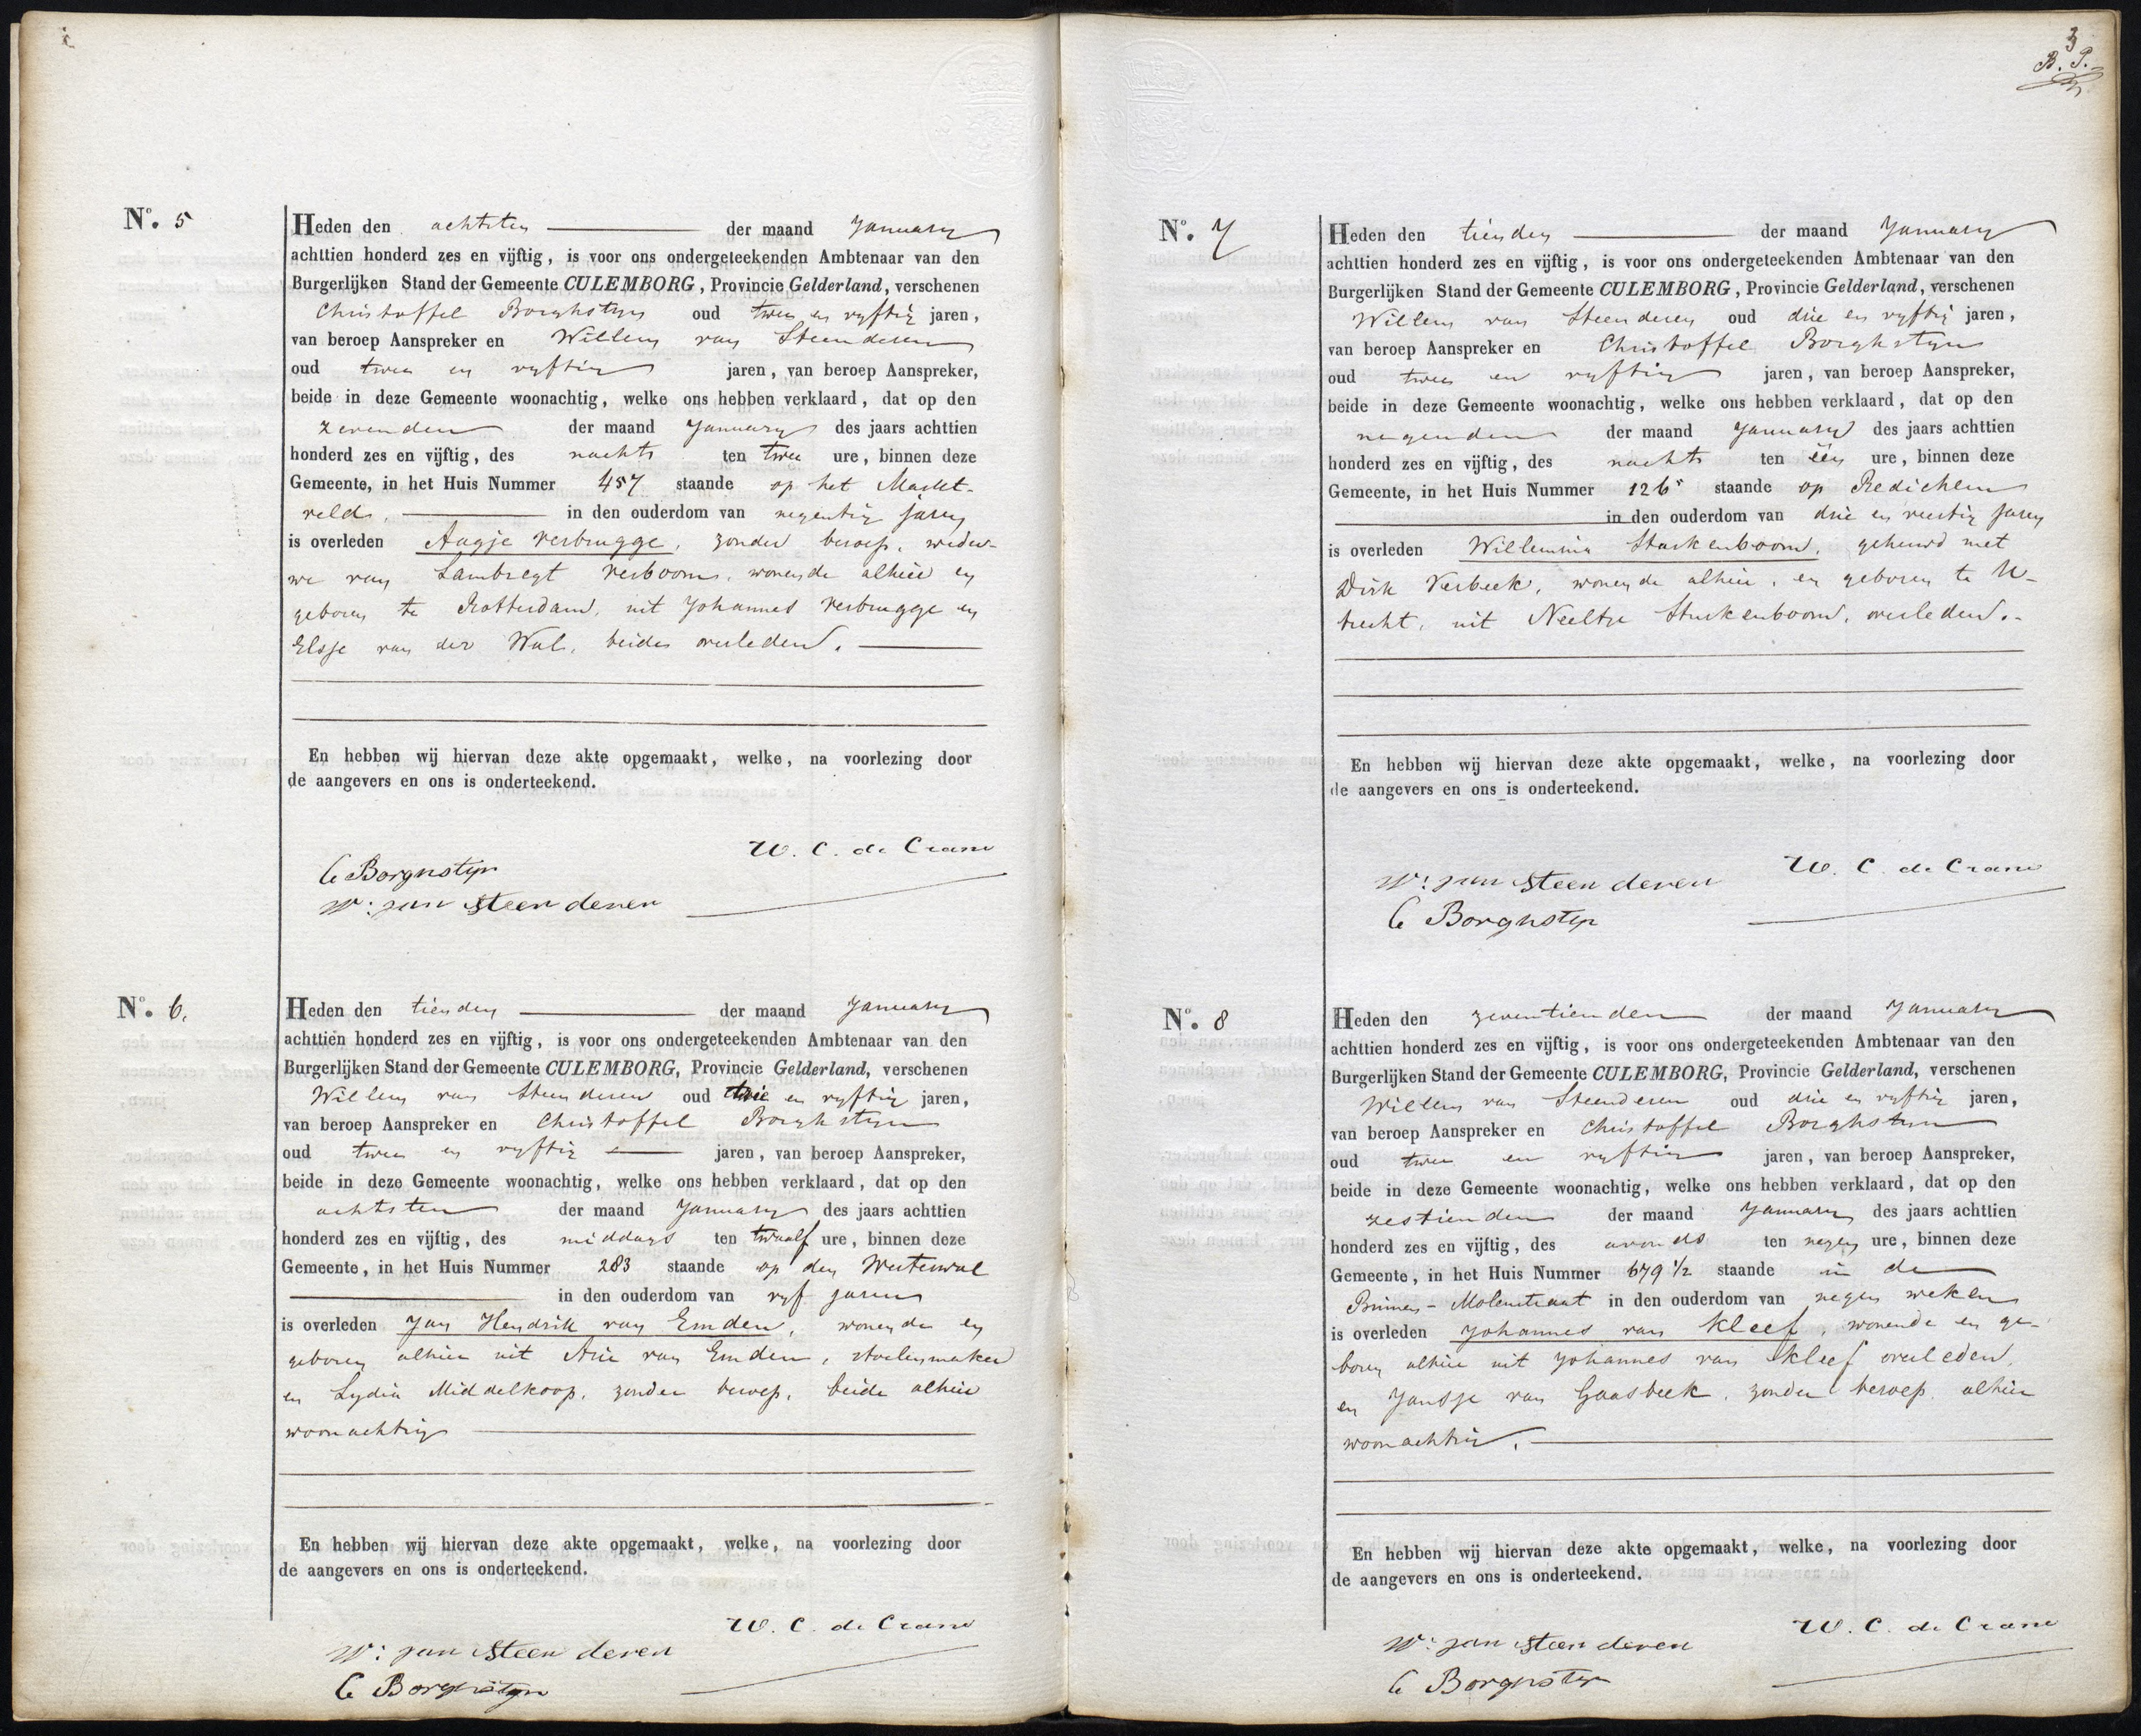 Nº. 5
Heden den achtsten der maand January
achttien honderd zes en vijftig, is voor ons ondergeteekenden Ambtenaar van den
Burgerlijken Stand der Gemeente CULEMBORG, Provincie Gelderland, verschenen
Christoffel Borghstijn oud twee en vyftig jaren,
van beroep Aanspreker en Willem van Steenderen
oud twee en vyftig jaren, van beroep Aanspreker,
beide in deze Gemeente woonachtig, welke ons hebben verklaard, dat op den
zevenden der maand January des jaars achttien
honderd zes en vijftig, des nachts ten twee ure, binnen deze
Gemeente, in het Huis Nummer 457 staande op het Markt-
veld, in den ouderdom van negentig jaren
is overleden Aagje Verbrugge, zonder beroep, weduw-
we van Lambregt Verboom, wonende alhier en
geboren te Rotterdam, uit Johannes Verbrugge en
Elsje van der Wal, beiden overleden.
En hebben wij hiervan deze akte opgemaakt, welke, na voorlezing door
de aangevers en ons is onderteekend.
W. C. de Crane
C Borghstijn
W: van Steenderen
Nº. 6.
Heden den tienden der maand January
achttien honderd zes en vijftig, is voor ons ondergeteekenden Ambtenaar van den
Burgerlijken Stand der Gemeente CULEMBORG, Provincie Gelderland, verschenen
Willem van Steenderen oud drie en vyftig jaren,
van beroep Aanspreker en Christoffel Borghstijn
oud twee en vyftig jaren, van beroep Aanspreker,
beide in deze Gemeente woonachtig, welke ons hebben verklaard, dat op den
achtsten der maand January des jaars achttien
honderd zes en vijftig, des middags ten twaalf ure, binnen deze
Gemeente, in het Huis Nummer 283 staande op den Westerwal
in den ouderdom van vyf jaren
is overleden Jan Hendrik van Emden, wonende en
geboren alhier uit Arie van Emden, stoelenmaker
en Lydia Middelkoop, zonder beroep, beide alhier
woonachtig
En hebben wij hiervan deze akte opgemaakt, welke, na voorlezing door
de aangevers en ons is onderteekend.
W. C. de Crane
W: van Steenderen
C Borghstijn
3
B. P.
Nº. 7
Heden den tienden der maand January
achttien honderd zes en vijftig, is voor ons ondergeteekenden Ambtenaar van den
Burgerlijken Stand der Gemeente CULEMBORG, Provincie Gelderland, verschenen
Willem van Steenderen oud drie en vyftig jaren,
van beroep Aanspreker en Christoffel Borghstijn
oud twee en vyftig jaren, van beroep Aanspreker,
beide in deze Gemeente woonachtig, welke ons hebben verklaard, dat op den
negenden der maand January des jaars achttien
honderd zes en vijftig, des nachts ten één ure, binnen deze
Gemeente, in het Huis Nummer 126 staande op Redichem
in den ouderdom van drie en veertig jaren
is overleden Willemina Sturkenboom, gehuwd met
Dirk Verbeek, wonende alhier, en geboren te U-
trecht, uit Neeltje Sturkenboom, overleden.
En hebben wij hiervan deze akte opgemaakt, welke, na voorlezing door
de aangevers en ons is onderteekend.
W. C. de Crane
W: van Steenderen
C Borghstijn
Nº. 8
Heden den zeventienden der maand January
achttien honderd zes en vijftig, is voor ons ondergeteekenden Ambtenaar van den
Burgerlijken Stand der Gemeente CULEMBORG, Provincie Gelderland, verschenen
Willem van Steenderen oud drie en vyftig jaren,
van beroep Aanspreker en Christoffel Borghstijn
oud twee en vyftig jaren, van beroep Aanspreker,
beide in deze Gemeente woonachtig, welke ons hebben verklaard, dat op den
zestienden der maand January des jaars achttien
honderd zes en vijftig, des avonds ten negen ure, binnen deze
Gemeente, in het Huis Nummer 679 1/2 staande in de
Binnen-Molenstraat in den ouderdom van negen weken
is overleden Johannes van Kleef, wonende en ge-
boren alhier uit Johannes van Kleef overleden,
en Jansje van Gaasbeek, zonder beroep, alhier
woonachtig.
En hebben wij hiervan deze akte opgemaakt, welke, na voorlezing door
de aangevers en ons is onderteekend.
W. C. de Crane
W: van Steenderen
C Borghstijn